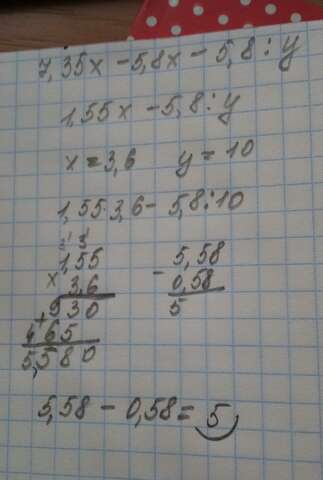 7,35x - 5,8x - 5,8 : y
1,55x - 5,8 : y
x = 3,6 y = 10
1,55 · 3,6 - 5,8 : 10
1,55
x 3,6
930
+ 465
5,580
5,58
- 0,58
5
5,58 - 0,58 = 5